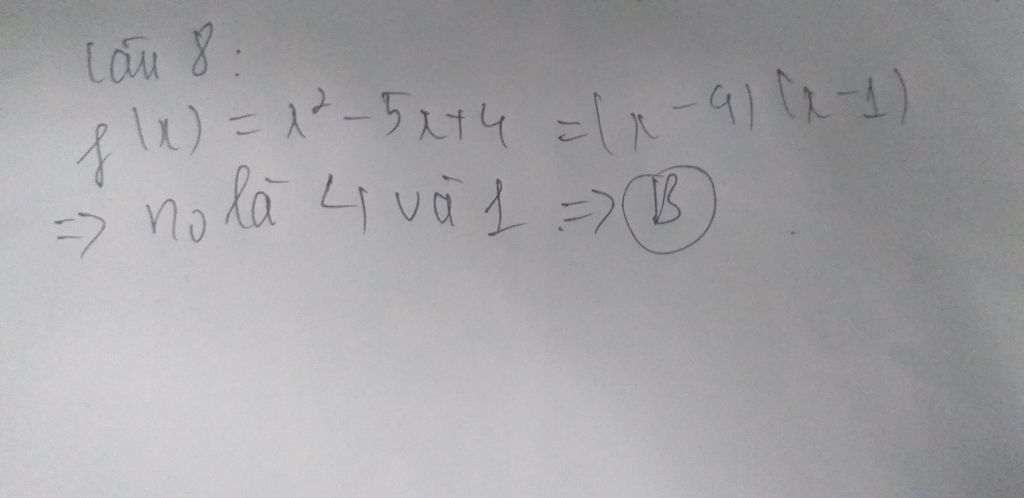 Câu 8:
f(x) = x² - 5x + 4 = (x - 4) (x - 1)
=> no là 4 và 1 => B